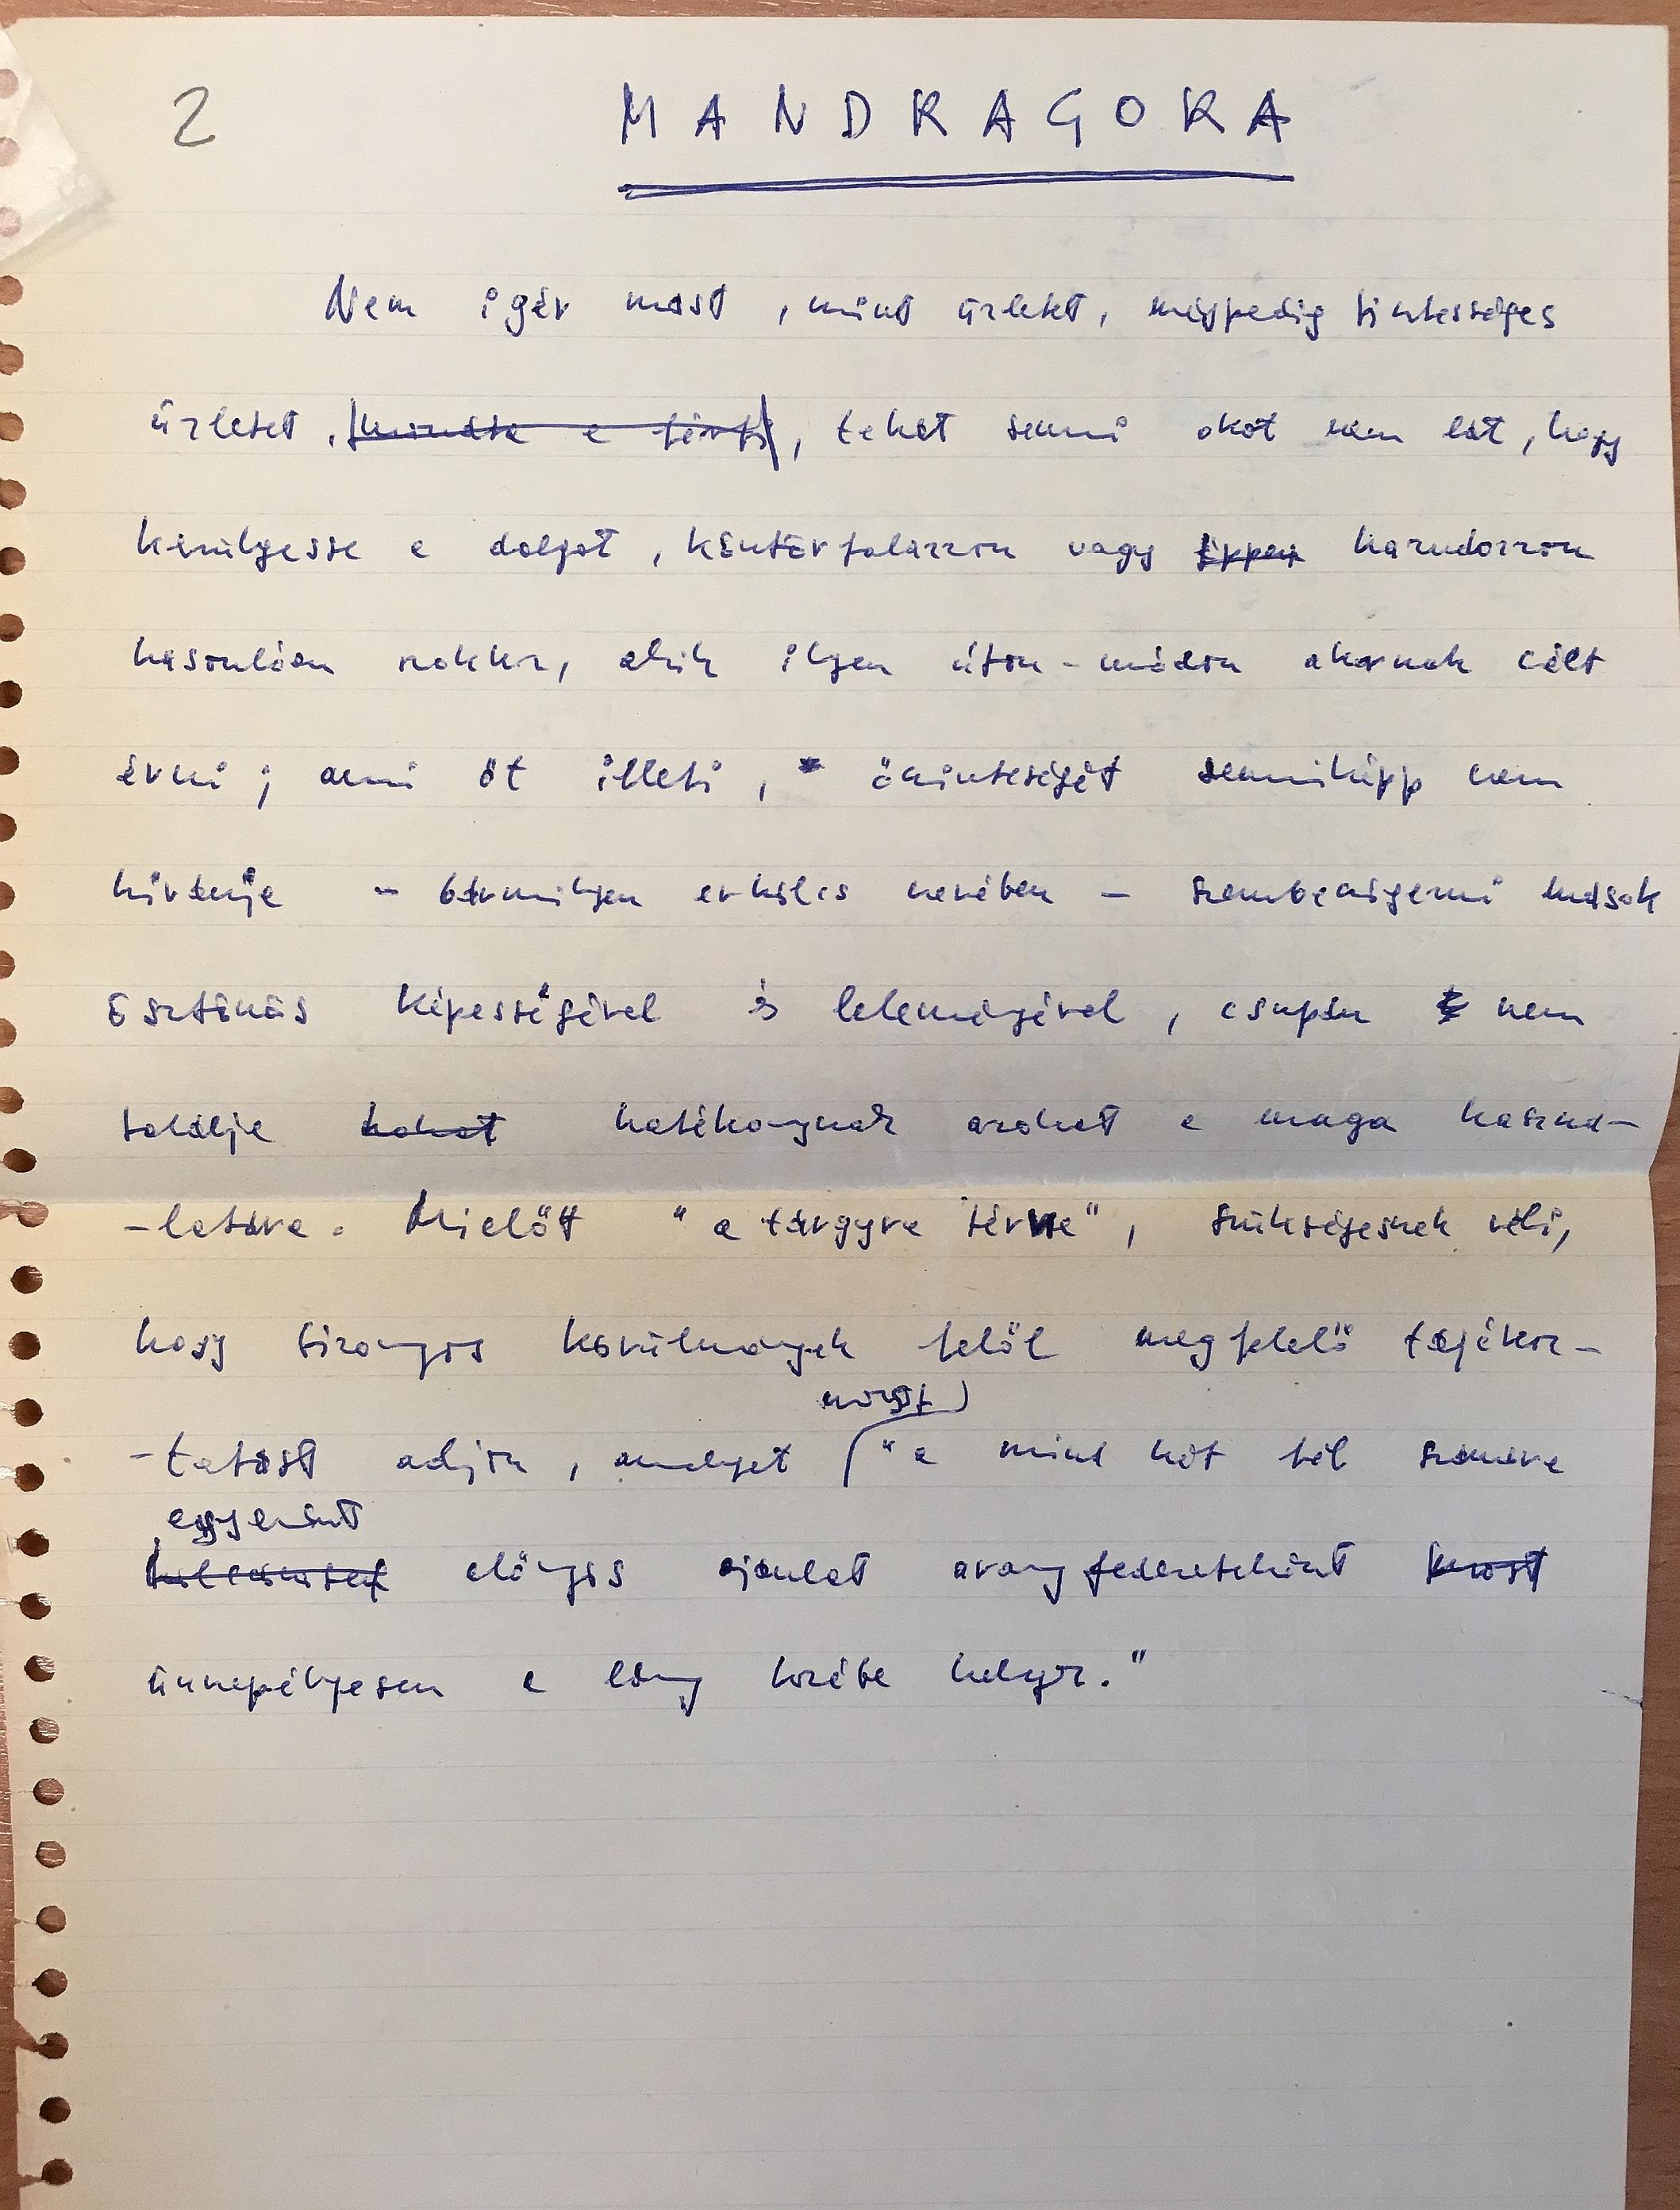 2 MANDRAGORA
Nem igér mást, mint üzletet, méspedig tisztességes
üzletet, tehát semmi okot nem lát, hogy
kerülgesse a dolgot, köntörfalazzon vagy hazudozzon
hasonlóan azokhoz, akik ilyen úton-módon akarnak célt
érni; ami őt illeti, őszinteségét semmiképp nem
kívánja - bármilyen erkölcs nevében - szembeszegezni mások
ösztönös képességével és leleményével, csupán nem
találja hatékonynak azokat a maga haszná-
-latára. Mielőtt "a tárgyra térne", szükségesnek véli,
hogy bizonyos körülmények felől megfelelő tájékoz-
most
-tatást adjon, amelyet "a mind két fél számára
egyaránt
előnyös ajánlat aranyfedezeteként
ünnepélyesen a lány kezébe helyez."